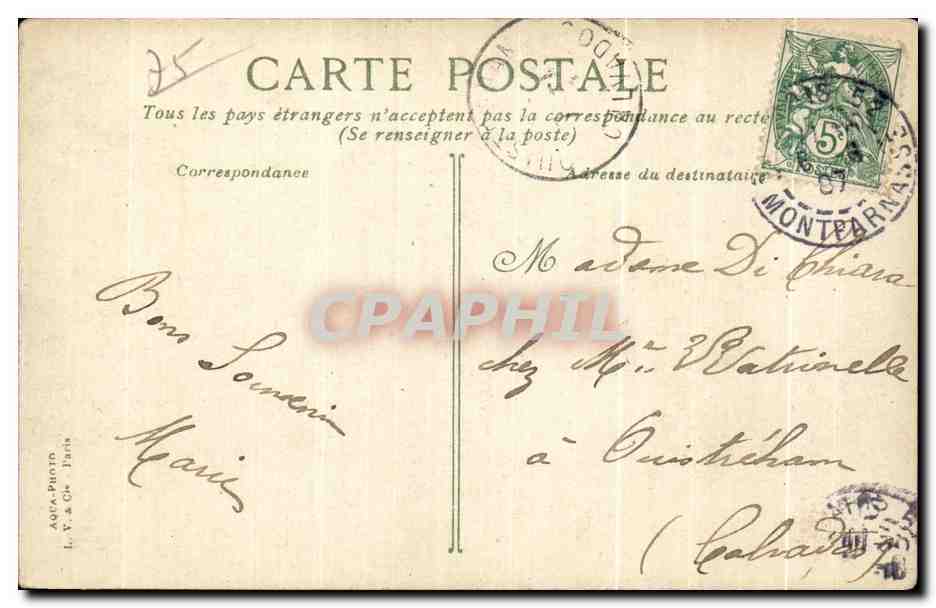 75
CARTE POSTALE
Tous les pays étrangers n'acceptent pas la correspondance au recto
(Se renseigner à la poste)
Correspondance
Adresse du destinataire
5
15 52
07
MONTPARNASSE
CALVADOS
OUIST
Bons
Souvenirs
Marie
Madame Di Chiara
chez Mr
à Ouistréham
(Calvados)
CPAPHIL
AQUA-PHOTO
L. V. & Cie - Paris